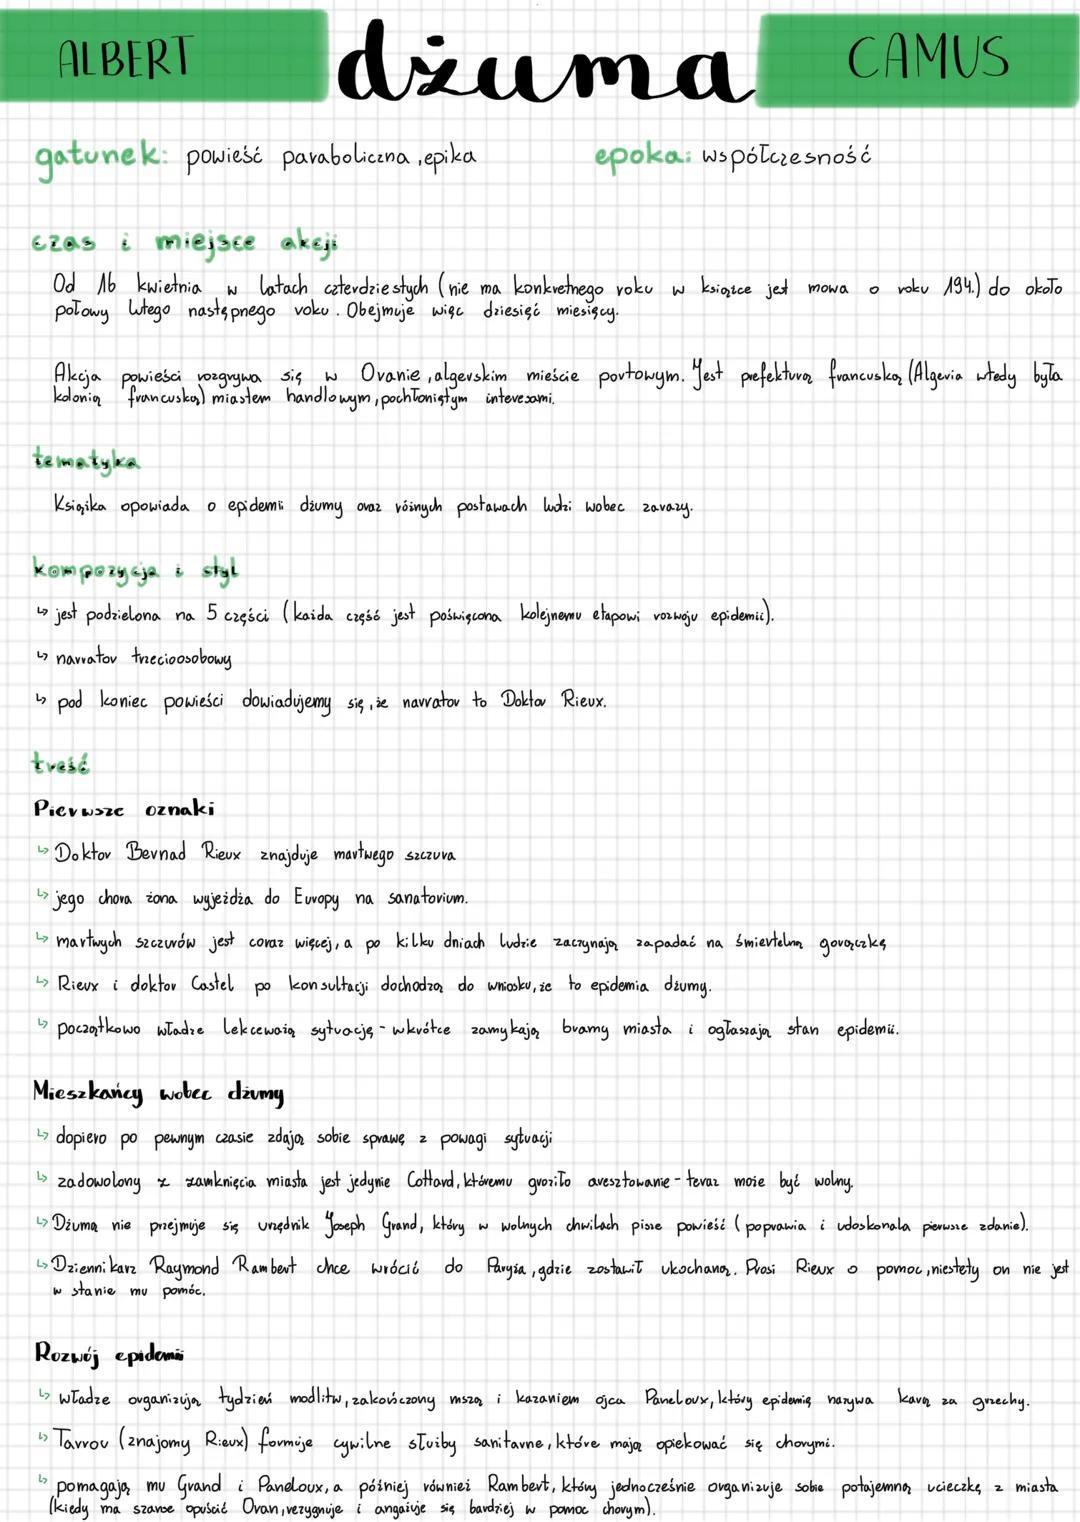 ALBERT dżuma CAMUS
gatunek: powieść paraboliczna, epika epoka: współczesność
czas i miejsce akcji
Od 16 kwietnia w latach czterdziestych (nie ma konkretnego roku w książce jest mowa o roku 194.) do około
połowy lutego następnego roku. Obejmuje więc dziesięć miesięcy.
Akcja powieści rozgrywa się w Oranie, algerskim mieście portowym. Jest prefekturą francuską (Algeria wtedy była
kolonią francuską) miastem handlowym, pochłoniętym interesami.
tematyka
Książka opowiada o epidemii dżumy oraz różnych postawach ludzi wobec zarazy.
kompozycja i styl
↳ jest podzielona na 5 części (każda część jest poświęcona kolejnemu etapowi rozwoju epidemii).
↳ narrator trzecioosobowy
↳ pod koniec powieści dowiadujemy się, że narrator to Doktor Rieux.
treść
Pierwsze oznaki
↳ Doktor Bernad Rieux znajduje martwego szczura
↳ jego chora żona wyjeżdża do Europy na sanatorium.
↳ martwych szczurów jest coraz więcej, a po kilku dniach ludzie zaczynają zapadać na śmiertelną gorączkę
↳ Rieux i doktor Castel po konsultacji dochodzą do wniosku, że to epidemia dżumy.
↳ początkowo władze lekceważą sytuację - wkrótce zamykają bramy miasta i ogłaszają stan epidemii.
Mieszkańcy wobec dżumy
↳ dopiero po pewnym czasie zdają sobie sprawę z powagi sytuacji
↳ zadowolony z zamknięcia miasta jest jedynie Cottard, któremu groziło aresztowanie - teraz może być wolny.
↳ Dżumą nie przejmuje się urzędnik Joseph Grand, który w wolnych chwilach pisze powieść (poprawia i udoskonala pierwsze zdanie).
↳ Dziennikarz Raymond Rambert chce wrócić do Paryża, gdzie zostawił ukochaną. Prosi Rieux o pomoc, niestety on nie jest
w stanie mu pomóc.
Rozwój epidemii
↳ władze organizują tydzień modlitw, zakończony mszą i kazaniem ojca Paneloux, który epidemię nazywa karą za grzechy.
↳ Tarrou (znajomy Rieux) formuje cywilne służby sanitarne, które mają opiekować się chorymi.
↳ pomagają mu Grand i Paneloux, a później również Rambert, który jednocześnie organizuje sobie potajemną ucieczkę z miasta
(kiedy ma szanse opuścić Oran, rezygnuje i angażuje się bardziej w pomoc chorym).